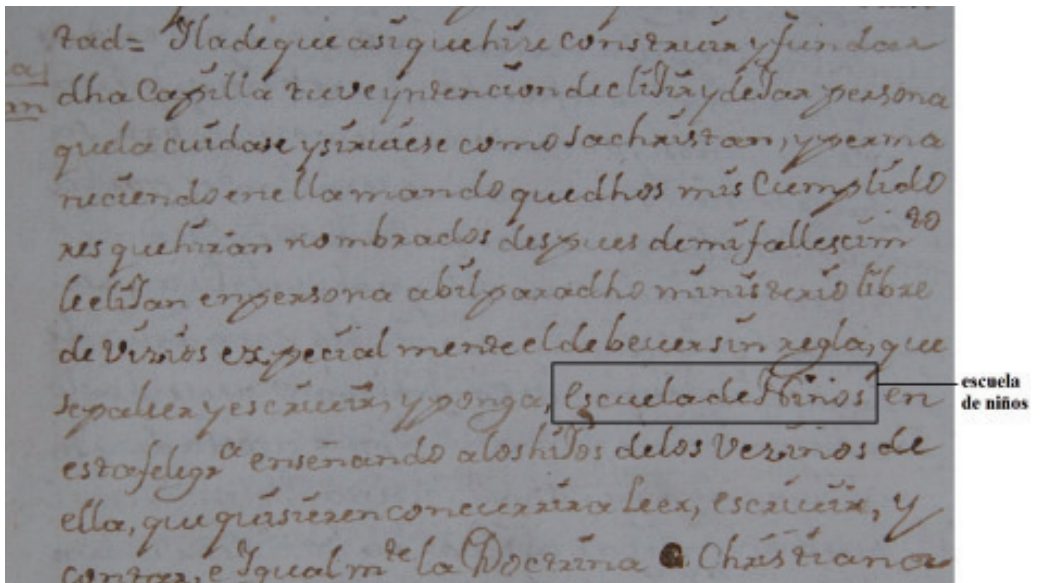 tad= Yla de que asi que hize construir y fundar
dha Capilla tuve yntencion de eliJir y deJar persona
que la cuidase y sirviese como Sachristan, y perma
neciendo en ella mando que dhos mis Cumplido
res que hiran nombrados despues de mi fallescim^to
le eliJan en persona abil para dho ministerio libre
de Vizios expecial mente el de bever sin regla, que
sepa leer y escrivir, y ponga, escuela de Niños en
esta felegr^a enseñando a los hiJos de los Vezinos de
ella, que quisieren concurrir a leer, escrivir, y
contar, e Igualm^te la Doctrina Christiana
escuela
de niños